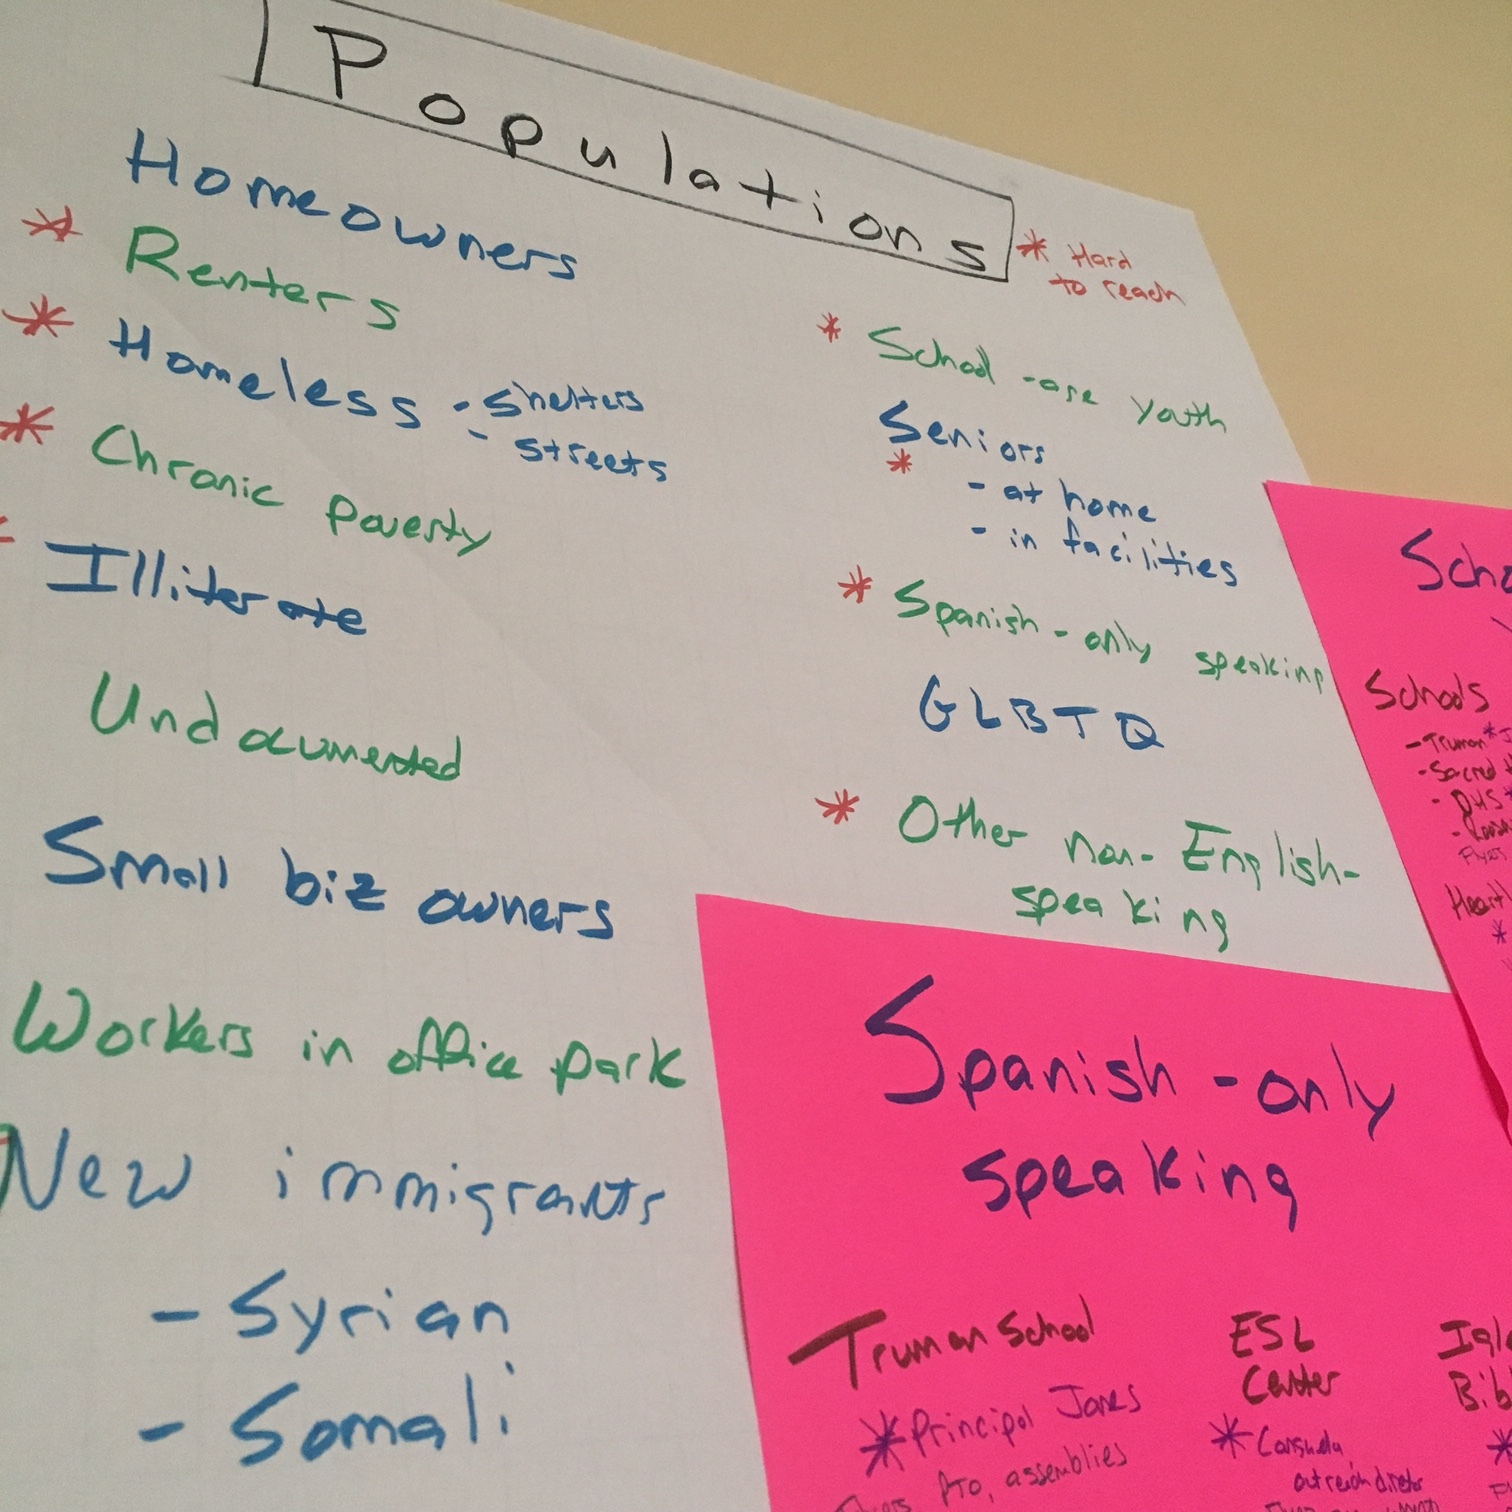 Populations
* Hard
to reach
Homeowners
* Renters
* Homeless - shelters
- streets
* Chronic Poverty
* Illiterate
Undocumented
Small biz owners
Workers in office park
New immigrants
- Syrian
- Somali
* School-age youth
Seniors
*
- at home
- in facilities
* Spanish-only speaking
GLBTQ
* Other non-English-
speaking
Spanish-only
speaking
Truman School
* Principal Jones
PTO, assemblies
ESL
Center
* Consuela
outreach director
Schools
- Truman *
- Sacred
- DHS *
Flyer
*